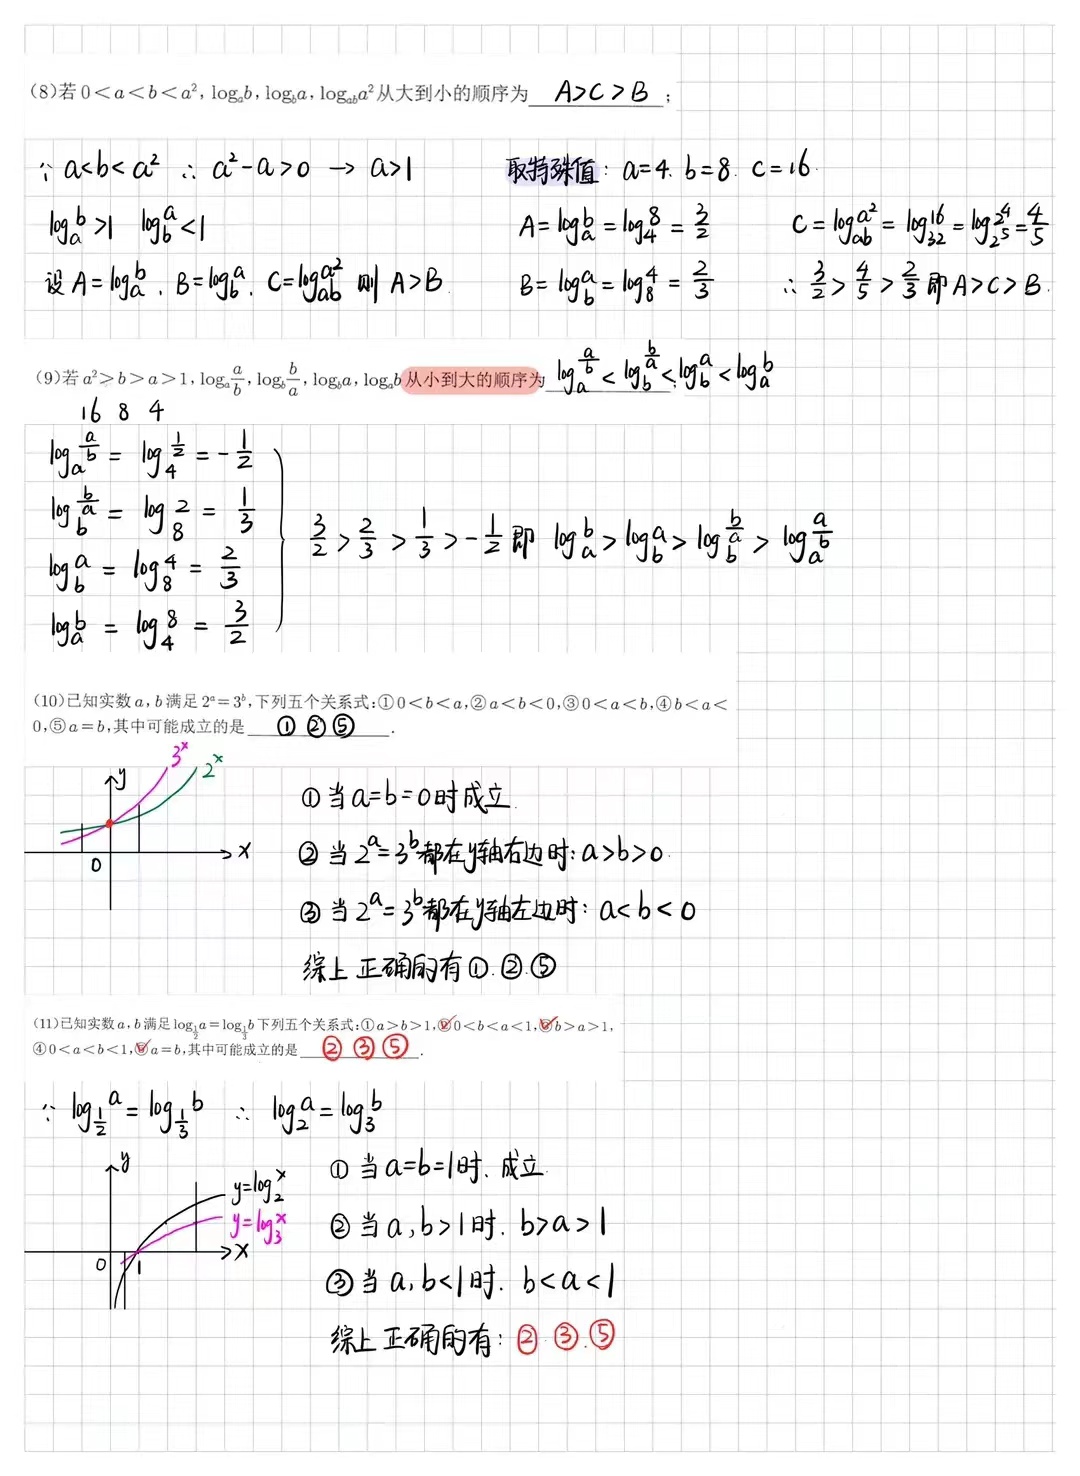 (8)若0<a<b<a²,logₐb,log_b a,log_ab a²从大到小的顺序为 A>C>B ;
∵ a<b<a² ∴ a²-a>0 → a>1
logₐb>1 log_b a<1
设A=logₐb, B=log_b a, C=log_ab a² 则 A>B.
取特殊值: a=4. b=8. C=16.
A=logₐb=log₄8=3/2
C=log_ab a²=log₃₂16=log_2⁵ 2⁴=4/5
B=log_b a=log₈4=2/3
∴ 3/2>4/5>2/3 即A>C>B.
(9)若a²>b>a>1,logₐ a/b,log_b b/a,log_b a,logₐb从小到大的顺序为 logₐ a/b<log_b b/a<log_b a<logₐb ;
16 8 4
logₐ a/b = log₄ 1/2 = -1/2
log_b b/a = log₈ 2 = 1/3
log_b a = log₈4 = 2/3
logₐb = log₄8 = 3/2
3/2>2/3>1/3>-1/2 即 logₐb>log_b a>log_b b/a>logₐ a/b
(10)已知实数a,b满足2ᵃ=3ᵇ,下列五个关系式:①0<b<a,②a<b<0,③0<a<b,④b<a<
0,⑤a=b,其中可能成立的是 ①②⑤ .
3ˣ
2ˣ
y
x
0
①当a=b=0时成立.
②当2ᵃ=3ᵇ都在y轴右边时:a>b>0.
③当2ᵃ=3ᵇ都在y轴左边时: a<b<0
综上 正确的有①.②.⑤
(11)已知实数a,b满足log_1/2 a=log_1/3 b下列五个关系式:①a>b>1,②0<b<a<1,③b>a>1,
④0<a<b<1,⑤a=b,其中可能成立的是 ②③⑤ .
∵ log_1/2 a=log_1/3 b ∴ log₂a=log₃b
y
y=log₂x
y=log₃x
x
0
1
①当a=b=1时.成立.
②当a,b>1时. b>a>1
③当a,b<1时. b<a<1
综上正确的有: ②.③.⑤